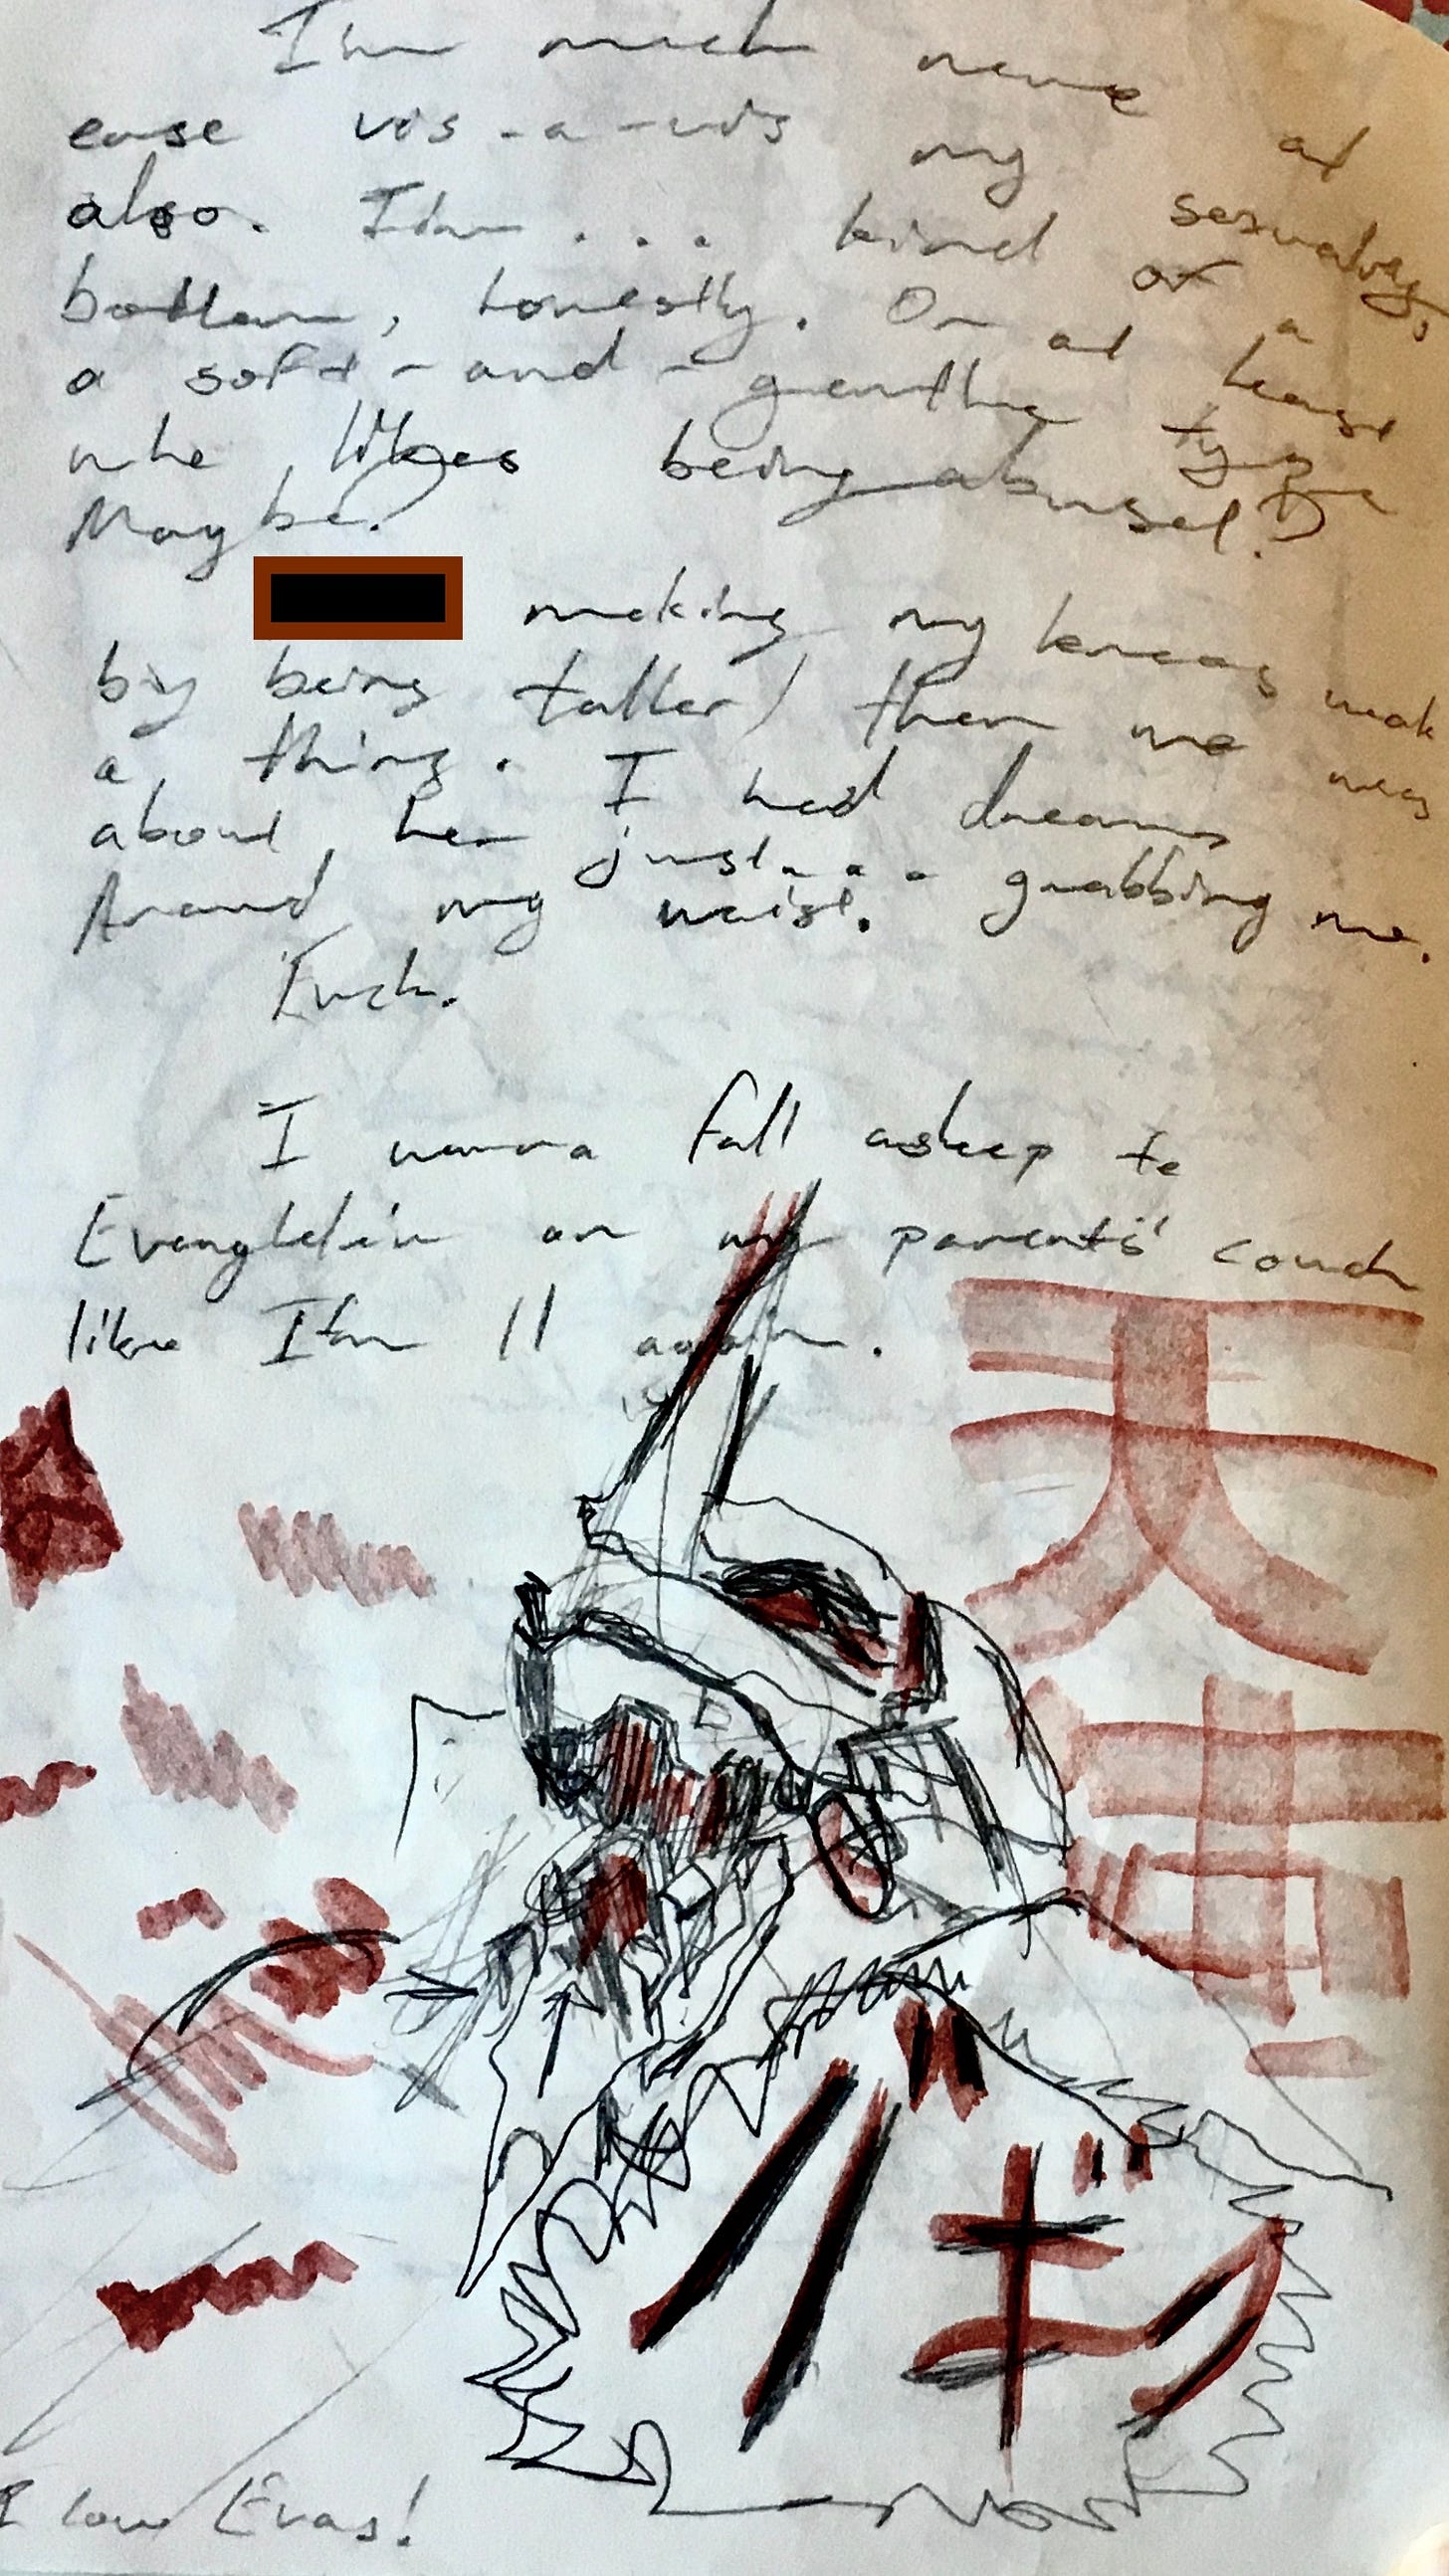 I'm much more at
ease vis-a-vis my sexuality,
also. I'm... kind of a
bottom, honestly. Or at least
a soft-and-gentle type
who likes being abused?
Maybe?
making my knees weak
by being taller than me was
a thing. I had dreams
about her just... grabbing me.
Around my waist.
Fuck.
I wanna fall asleep to
Evangelion on my parents' couch
like I'm 11 again.
天
使
バギク
I love Evas!